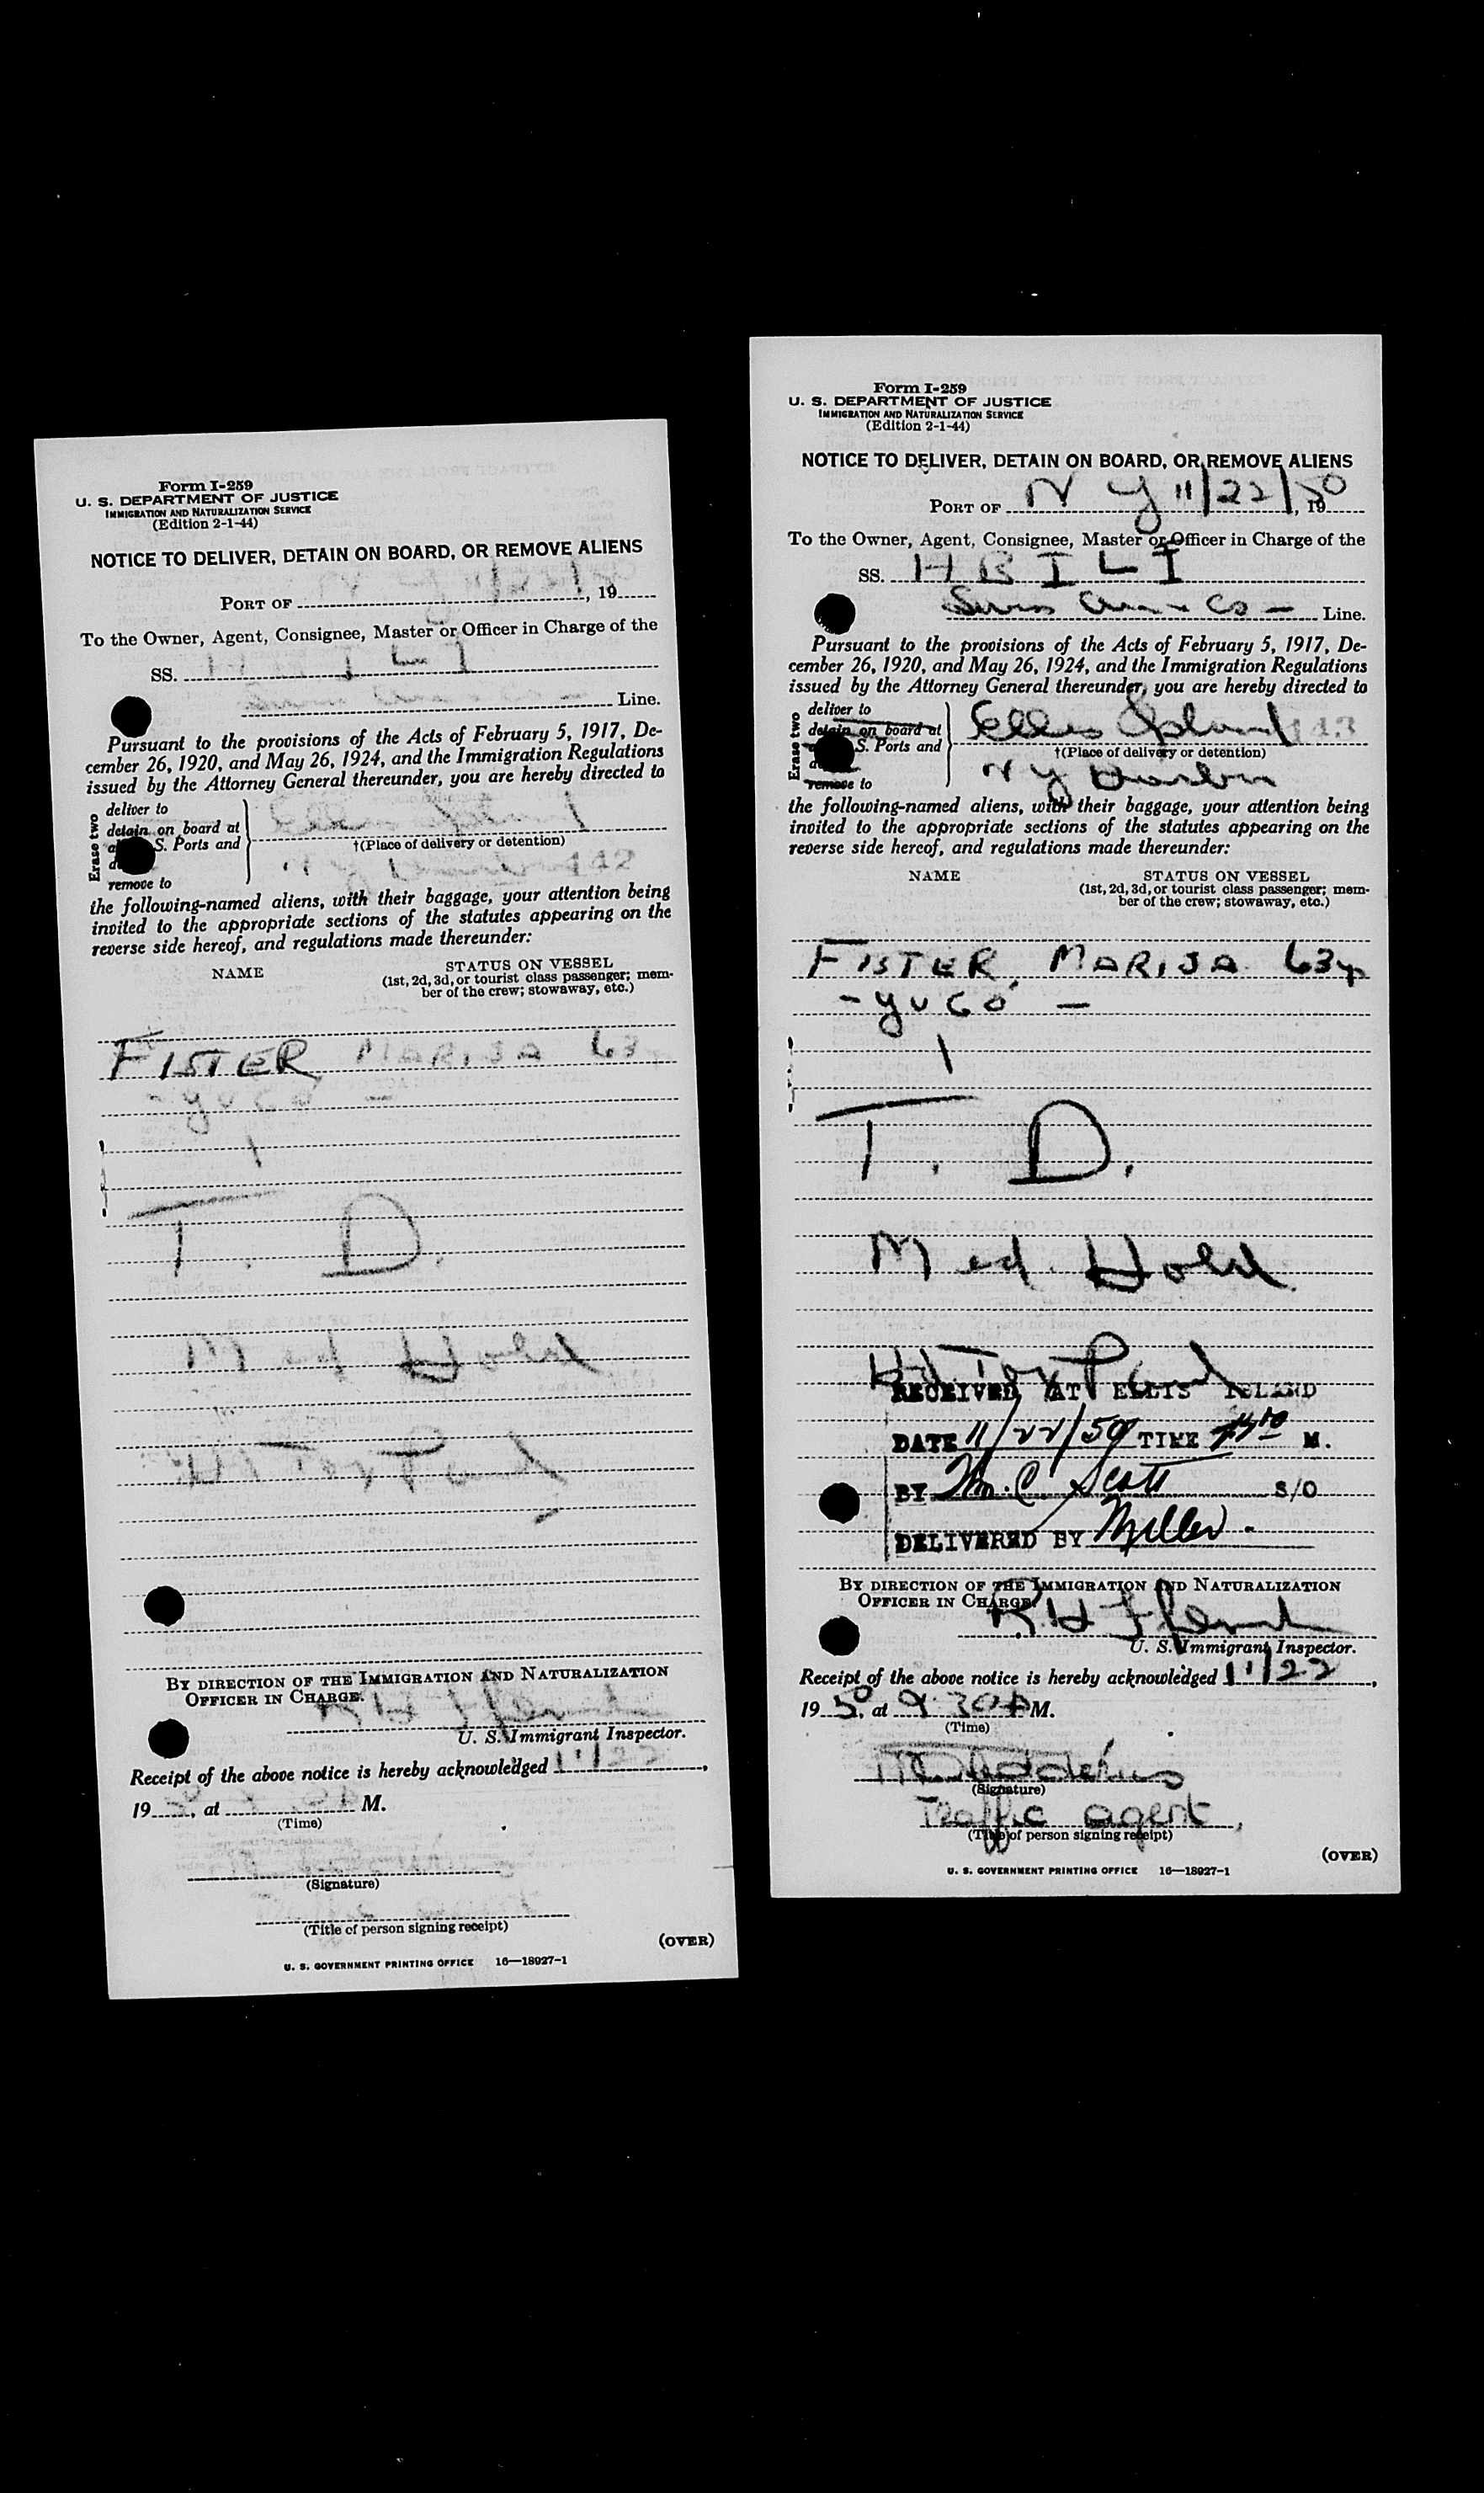 Form I-259
U. S. DEPARTMENT OF JUSTICE
IMMIGRATION AND NATURALIZATION SERVICE
(Edition 2-1-44)
NOTICE TO DELIVER, DETAIN ON BOARD, OR REMOVE ALIENS
PORT OF N Y 11/22/50, 19
To the Owner, Agent, Consignee, Master or Officer in Charge of the
SS. I L I
Line.
Pursuant to the provisions of the Acts of February 5, 1917, De-
cember 26, 1920, and May 26, 1924, and the Immigration Regulations
issued by the Attorney General thereunder, you are hereby directed to
Erase two
deliver to
detain on board at
S. Ports and
remove to
Ellis Island
†(Place of delivery or detention)
N Y Harbor 142
the following-named aliens, with their baggage, your attention being
invited to the appropriate sections of the statutes appearing on the
reverse side hereof, and regulations made thereunder:
NAME
STATUS ON VESSEL
(1st, 2d, 3d, or tourist class passenger; mem-
ber of the crew; stowaway, etc.)
FISTER, MARIJA 63
- YUGO -
1
T. D.
Med Hold
BY DIRECTION OF THE IMMIGRATION AND NATURALIZATION
OFFICER IN CHARGE:
U. S. Immigrant Inspector.
Receipt of the above notice is hereby acknowledged 11/22,
19 50, at M.
(Time)
(Signature)
(Title of person signing receipt)
(OVER)
U. S. GOVERNMENT PRINTING OFFICE 16—18927-1
Form I-259
U. S. DEPARTMENT OF JUSTICE
IMMIGRATION AND NATURALIZATION SERVICE
(Edition 2-1-44)
NOTICE TO DELIVER, DETAIN ON BOARD, OR REMOVE ALIENS
PORT OF N Y 11/22/50, 19
To the Owner, Agent, Consignee, Master or Officer in Charge of the
SS. H B I L I
Co - Line.
Pursuant to the provisions of the Acts of February 5, 1917, De-
cember 26, 1920, and May 26, 1924, and the Immigration Regulations
issued by the Attorney General thereunder, you are hereby directed to
Erase two
deliver to
detain on board at
S. Ports and
remove to
Ellis Island 143
†(Place of delivery or detention)
N Y Harbor
the following-named aliens, with their baggage, your attention being
invited to the appropriate sections of the statutes appearing on the
reverse side hereof, and regulations made thereunder:
NAME
STATUS ON VESSEL
(1st, 2d, 3d, or tourist class passenger; mem-
ber of the crew; stowaway, etc.)
FISTER, MARIJA 63
- YUGO -
1
T. D.
Med. Hold
RECEIVED AT ELLIS ISLAND
DATE 11/22/50 TIME M.
BY Wm. C. Scott S/O
DELIVERED BY Miller.
BY DIRECTION OF THE IMMIGRATION AND NATURALIZATION
OFFICER IN CHARGE:
U. S. Immigrant Inspector.
Receipt of the above notice is hereby acknowledged 11/22,
19 50, at 9:30 A M.
(Time)
(Signature)
Traffic agent,
(Title of person signing receipt)
(OVER)
U. S. GOVERNMENT PRINTING OFFICE 16—18927-1